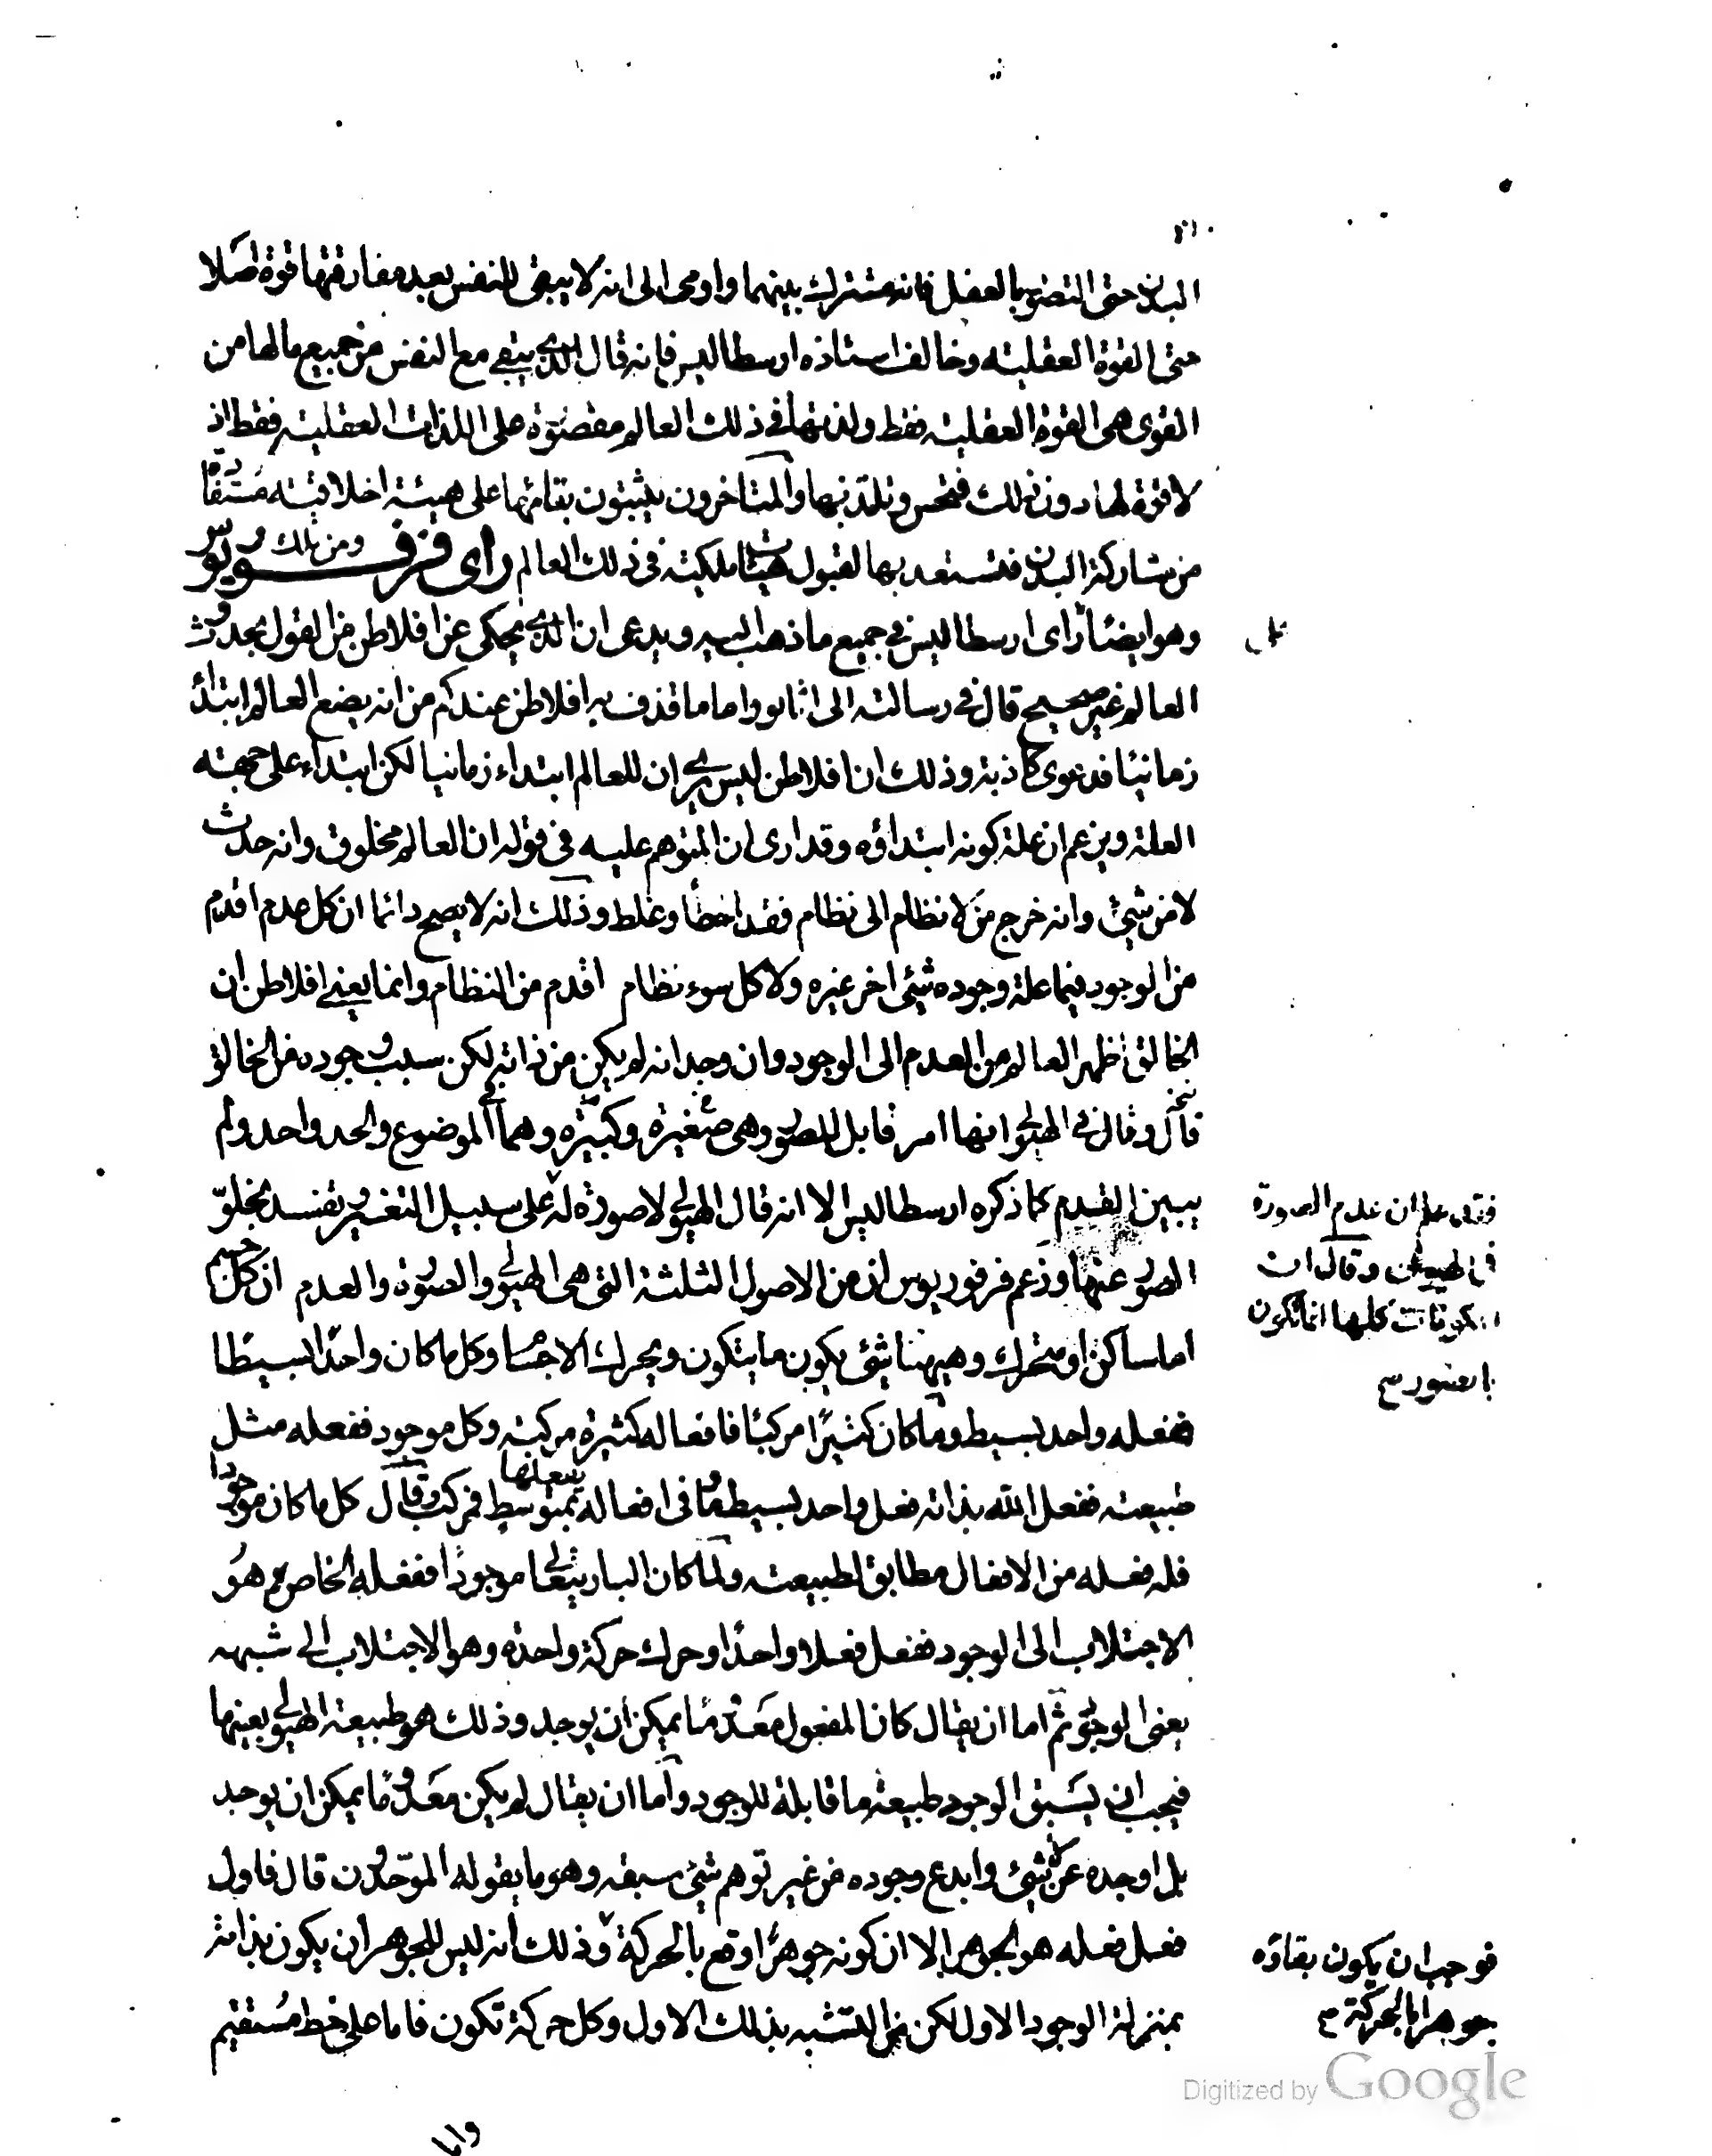 البدن حتى التصور بالعقل فانه مشترك بينهما واومى الى انه لا يبقى للنفس بعد مفارقتها قوة اصلا
حتى القوة العقلية وخالف استاذه ارسطاليس فانه قال الذي يبقى مع النفس من جميع مالها من
القوى هى القوة العقلية فقط ولذتها في ذلك العالم مقصورة على اللذات العقلية فقط اذ
لا قوة لها دون ذلك فتحس وتلتذ بها والمتاخرون يثبتون بقاءها على هيئة اخلاقية مستفادة
من مشاركة البدن فتستعد بها لقبول هيئات ملكية في ذلك العالم ومن ذلك راى فرفوريوس
وهو ايضا على راى ارسطاليس في جميع ما ذهب اليه ويدعى ان الذي يحكى عن افلاطن من القول بحدوث
العالم غير صحيح قال في رسالته الى انابو واما ما قذف به افلاطن عندكم من انه يضع العالم ابتداءً
زمانيا فدعوى كاذبة وذلك ان افلاطن ليس يرى ان للعالم ابتداء زمانيا لكن ابتداء على جهة
العلة ويزعم ان علة كونه ابتداؤه وقد ارى ان المتوهم عليه في قوله ان العالم مخلوق وانه حدث
لا من شيئ وانه خرج من لا نظام الى نظام فقد اخطأ وغلط وذلك انه لا يصح دائما ان كل عدم اقدم
من الوجود فيما علة وجوده شيئ اخر غيره ولا كل سوء نظام اقدم من النظام وانما يعني افلاطن ان
الخالق اظهر العالم من العدم الى الوجود وان وجد انه لم يكن من ذاته لكن سبب وجوده من الخالق
قال وقال في الهيولى انها امر قابل للصور وهى صغيرة وكبيرة وهما في الموضوع والحد واحد ولم
يبين القدم كما ذكره ارسطاليس الا انه قال الهيولى لا صورة له على سبيل التغير يفسد بخلو
فقد علم ان عدم الصورة
الصور عنها وزعم فرفوريوس ان من الاصول الثلثة التى هى الهيولى والصورة والعدم ان كل جسم
في الهيولى وقال ان
اما ساكن او متحرك وههنا شئ يكون ما يتكون ويحرك الاجسام وكل ما كان واحدًا بسيطًا
المكونات كلها انما تكون
بالصور صح
ففعله واحد بسيط وما كان كثيرًا مركبًا فافعاله كثيرة مركبة وكل موجود ففعله مثل
طبيعته ففعل الله بذاته فعل واحد بسيط وما في افعاله يفعلها بمتوسط فمركب وقال كل ما كان موجودا
فله فعله من الافعال مطابق لطبيعته ولما كان الباري تعالى موجودًا ففعله الخاص هو
الاجتلاب الى الوجود ففعل فعلا واحدًا وحرك حركة واحدة وهو الاجتلاب الى شبهه
يعنى الوجود ثم اما ان يقال كان المفعول معدومًا يمكن ان يوجد وذلك هو طبيعة الهيولى بعينها
فيجب ان يسبق الوجود طبيعة ما قابلة للوجود واما ان يقال لم يكن معدومًا يمكن ان يوجد
بل اوجده عن لا شيئ وابدع وجوده من غير توهم شيئ سبقه وهو ما يقوله الموحدون قال فاول
فعل فعله هو الجوهر الا ان كونه جوهرًا وقع بالحركة وذلك انه ليس للجوهر ان يكون بذاته
فوجب ان يكون بقاؤه
جوهرا بالحركة صح
بمنزلة الوجود الاول لكن من التشبه بذلك الاول وكل حركة تكون فاما على خط مستقيم
واما
Digitized by Google